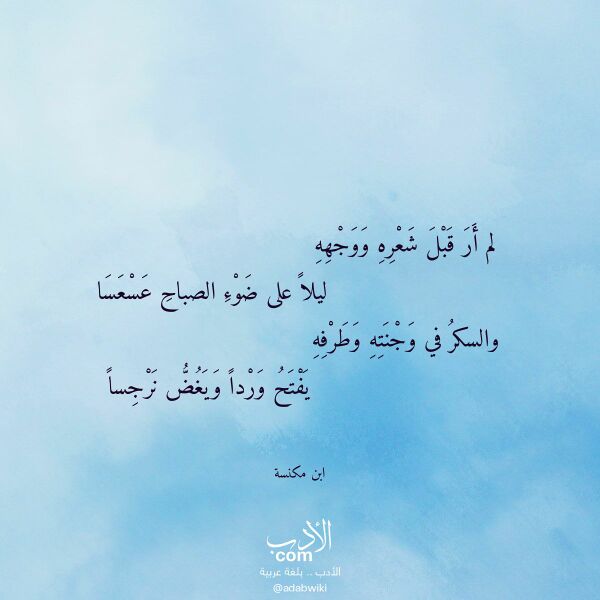 لم أَرَ قَبْلَ شَعْرِهِ وَوَجْهِهِ
ليلاً على ضَوْءِ الصباحِ عَسْعَسَا
والسكرُ في وَجْنَتِهِ وَطَرْفِهِ
يَفْتَحُ وَرْداً وَيَغُضُّ نَرْجِساً
ابن مكنسة
الأدب
com
الأدب .. بلغة عربية
@adabwiki